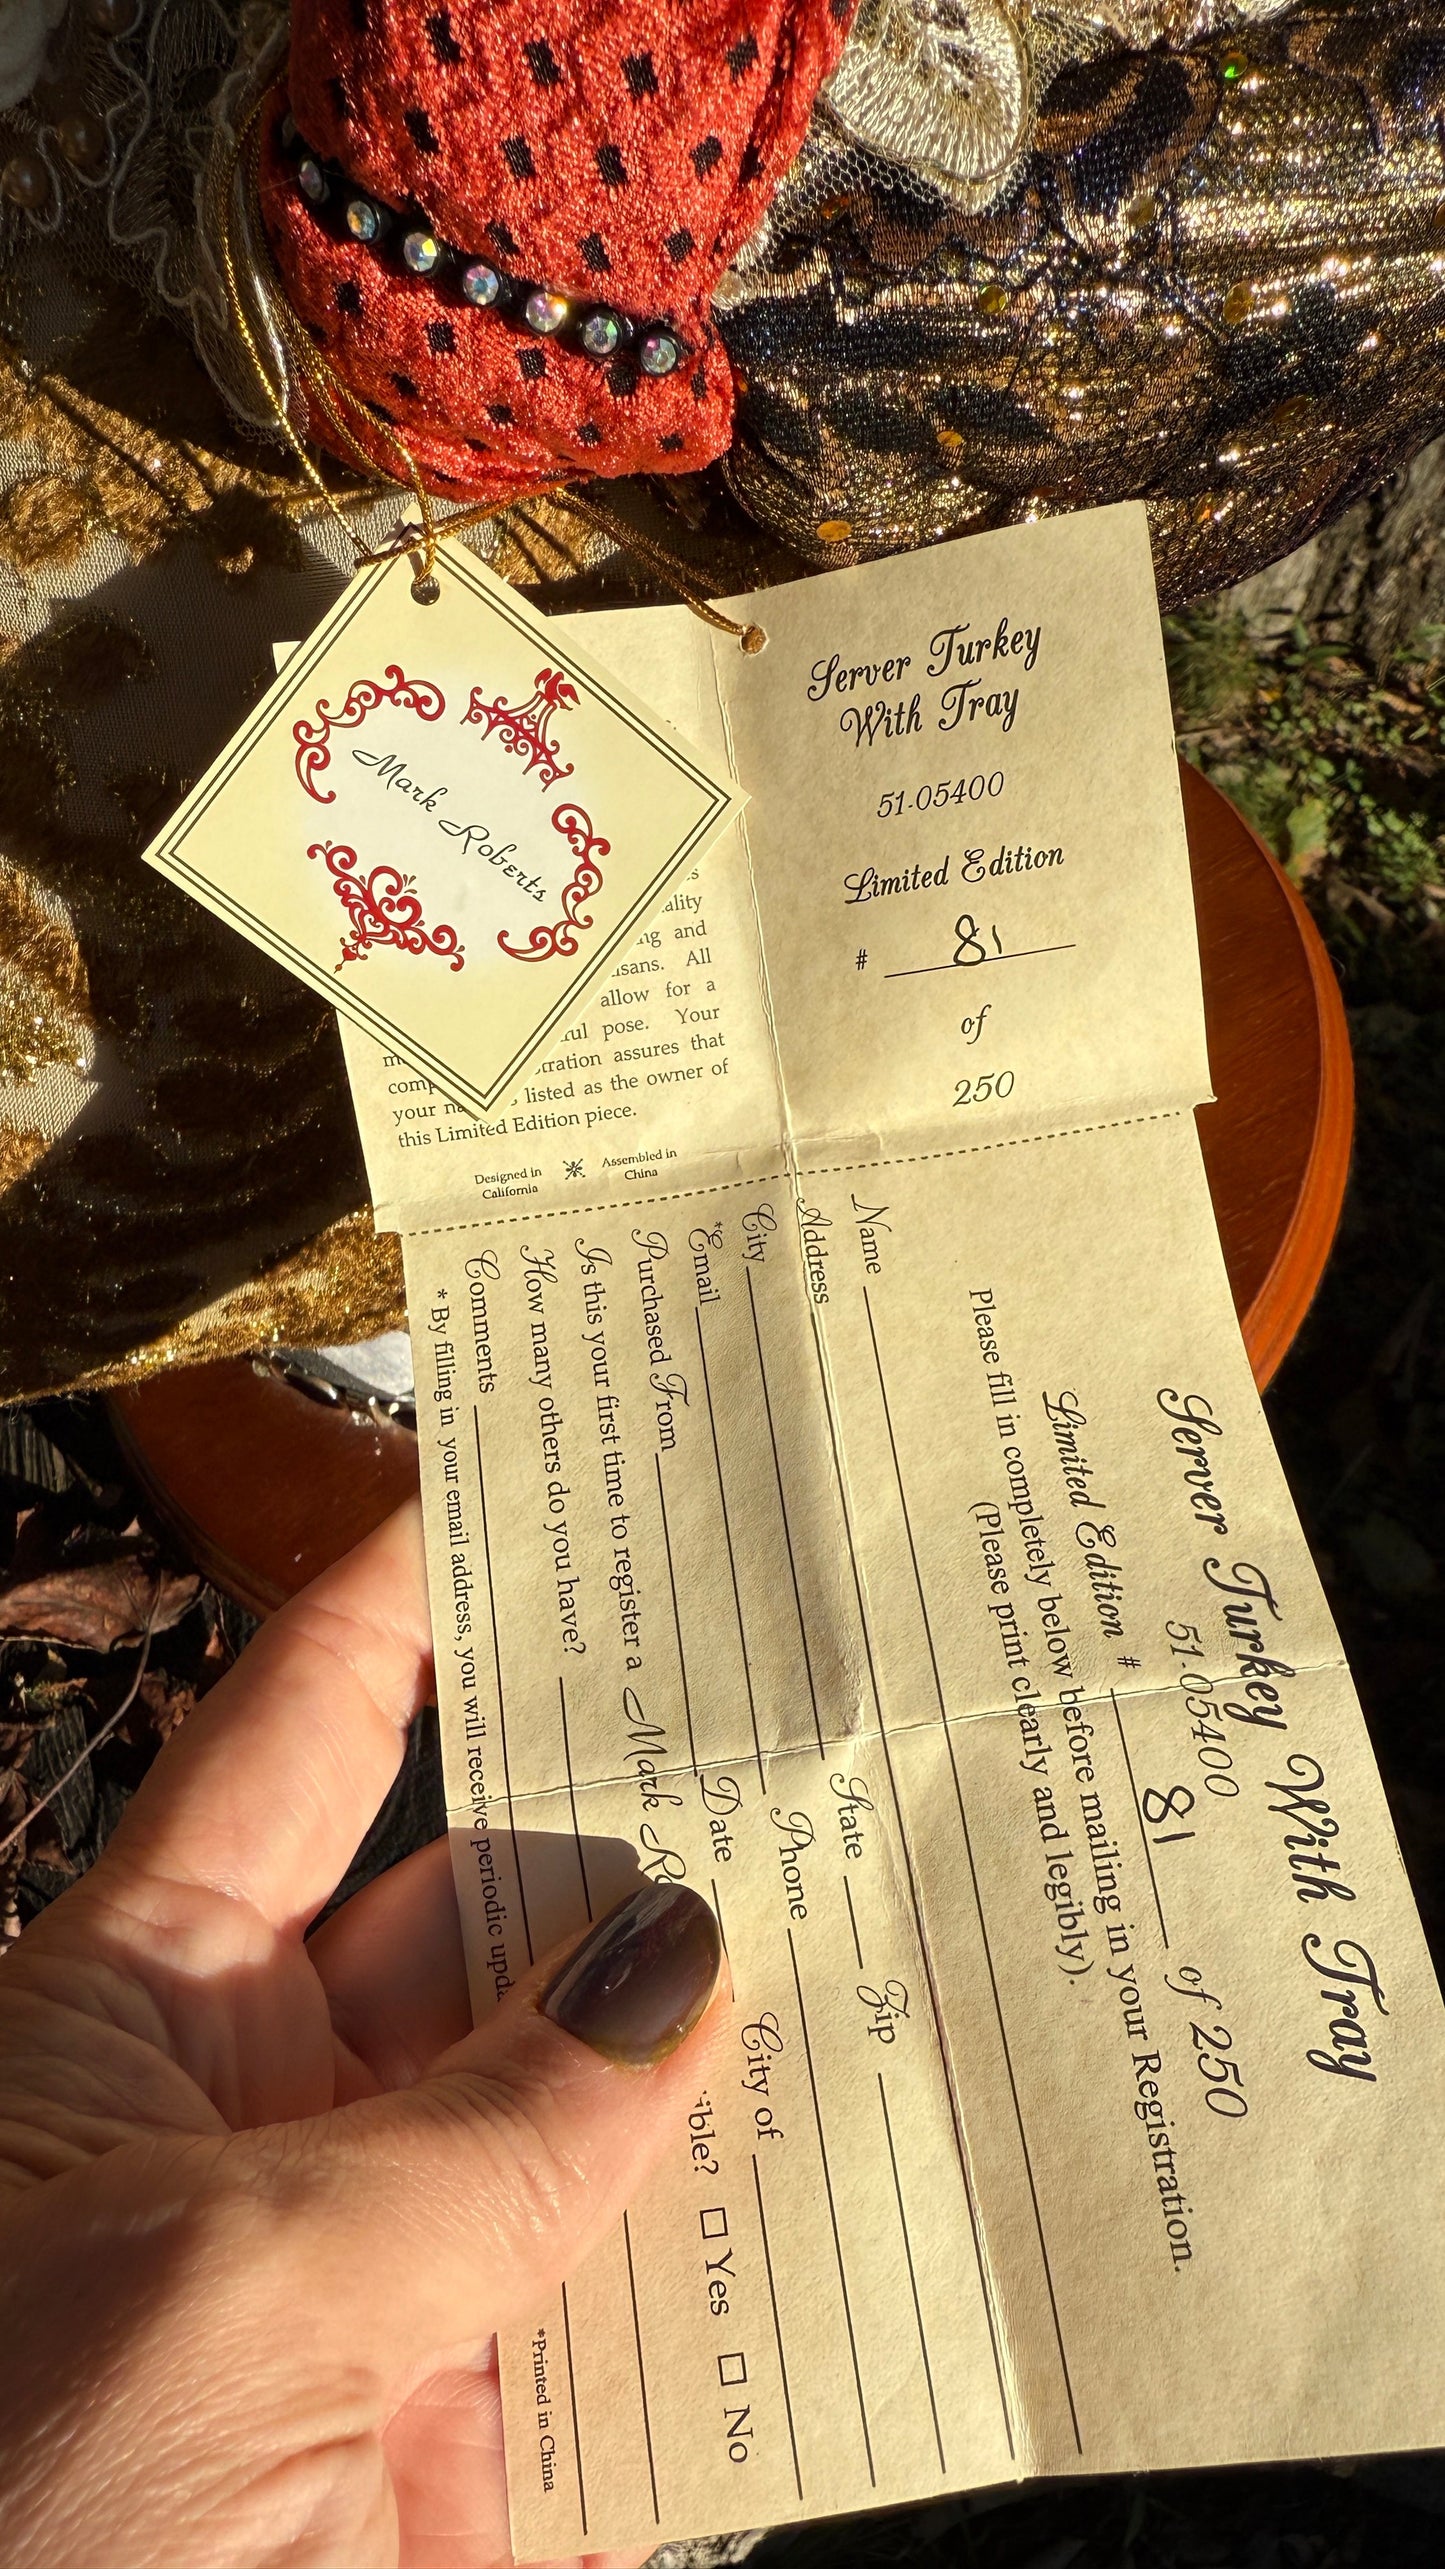 Mark Roberts
Server Turkey
With Tray
51-05400
Limited Edition
# 81
of
250
ality
and
All
allow for a
pose. Your
assures that
listed as the owner of
your
this Limited Edition piece.
Designed in
California
Assembled in
China
Server Turkey With Tray
51-05400
Limited Edition # 81 of 250
Please fill in completely below before mailing in your Registration.
(Please print clearly and legibly).
Name
Address
City State Zip
*Email Phone
Purchased From Date City of
Is this your first time to register a Mark
Yes No
How many others do you have?
Comments
* By filling in your email address, you will receive periodic
*Printed in China